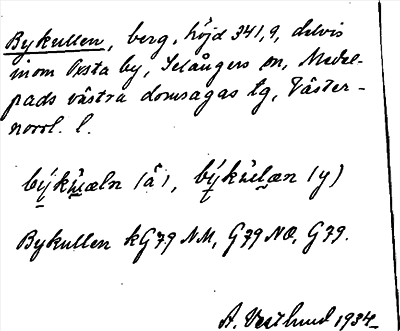 Bykullen, berg, höjd 341,9, delvis
inom Oxsta by, Selångers sn, Medel-
pads västra domsagas tg, Väster-
norrl. l.
býkùlæln (å), býkùlæn (y)
Bykullen kG79 NM, G79 NO, G79.
A. Vestlund 1934